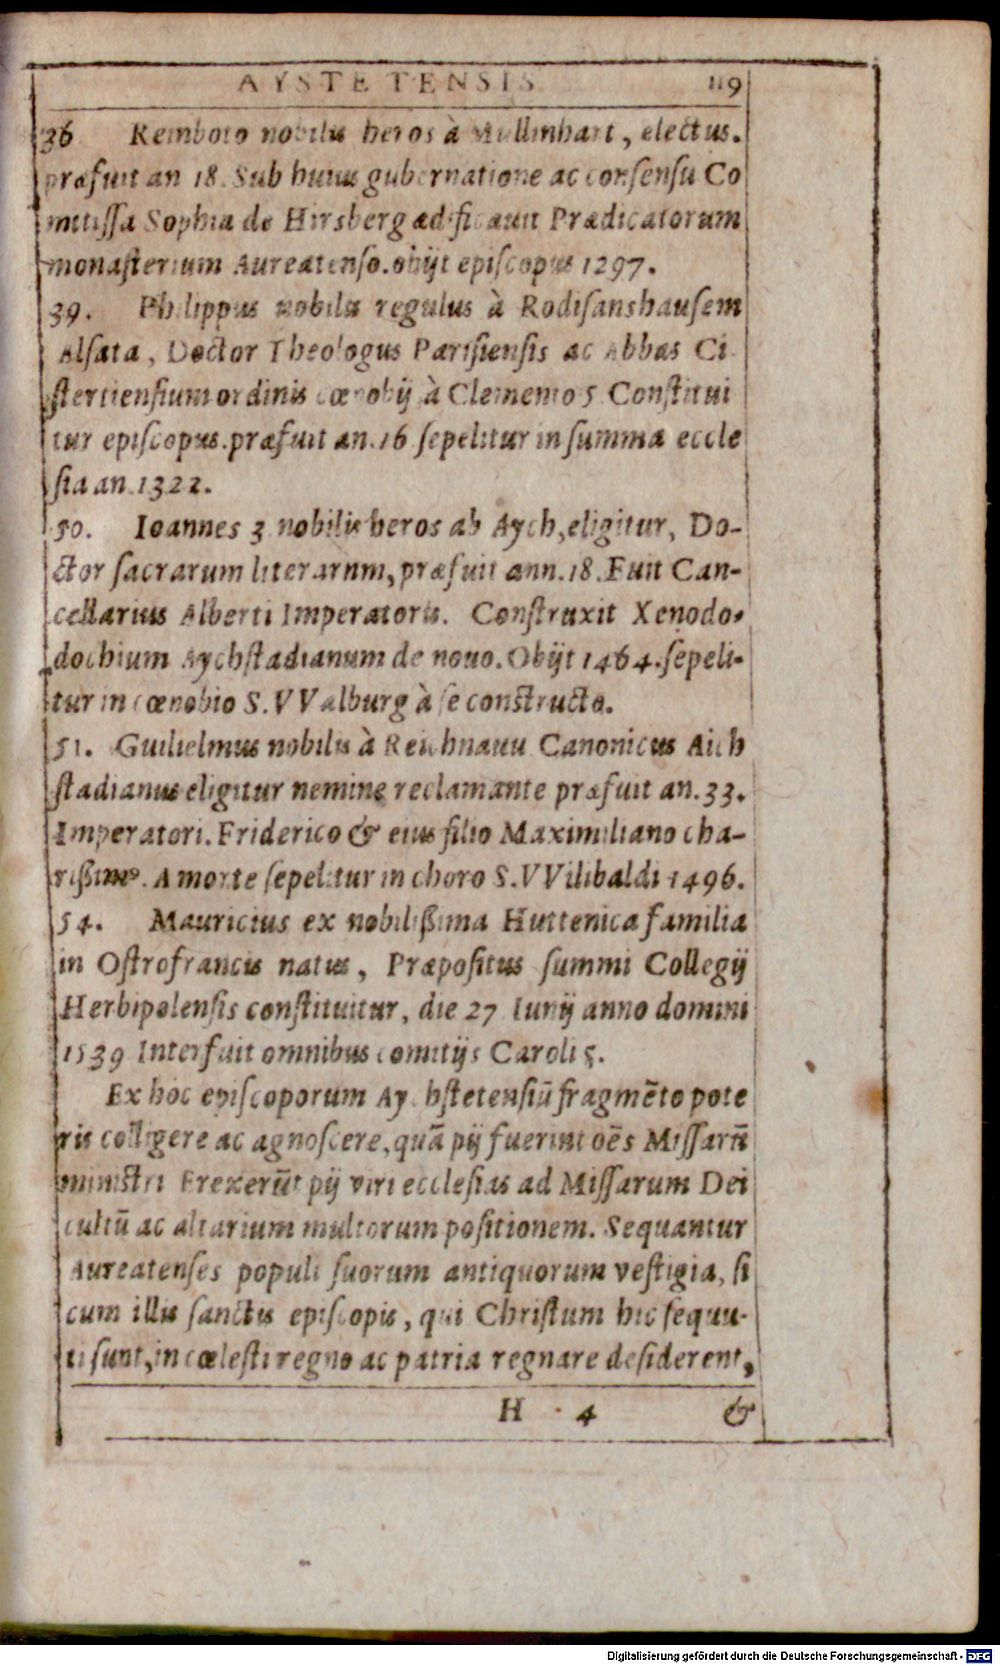 AYSTETENSIS 119
36 Remboto nobilis heros à Mullinhart, electus.
præfuit an 18. Sub huius gubernatione ac consensu Co
mitissa Sophia de Hirsberg ædificauit Prædicatorum
monasterium Aureatense. obijt episcopus 1297.
39. Philippus nobilis regulus à Rodisanshausem
Alsata, Doctor Theologus Parisiensis ac Abbas Ci
stertiensium ordinis cœnobij à Clemento 5 Constitui
tur episcopus. præfuit an. 16 sepelitur in summa eccle
sia an. 1322.
50. Ioannes 3 nobilis heros ab Aych, eligitur, Do-
ctor sacrarum literarnm, præfuit ann. 18. Fuit Can-
cellarius Alberti Imperatoris. Construxit Xenodo-
dochium Aychstadianum de nouo. Obijt 1464. sepeli-
tur in cœnobio S. VValburg à se constructo.
51. Guilielmus nobilis à Reichnauu Canonicus Aich
stadianus eligitur nemine reclamante præfuit an. 33.
Imperatori. Friderico & eius filio Maximiliano cha-
rißimo. A morte sepelitur in choro S. VVilibaldi 1496.
54. Mauricius ex nobilißima Huttenica familia
in Ostrofrancis natus, Præpositus summi Collegij
Herbipolensis constituitur, die 27 Iunij anno domini
1539 Interfuit omnibus comitijs Caroli 5.
Ex hoc episcoporum Aychstetensiū fragmēto pote
ris colligere ac agnoscere, quā pij fuerint oēs Missarū
ministri Erexerūt pij viri ecclesias ad Missarum Dei
cultū ac altarium multorum positionem. Sequantur
Aureatenses populi suorum antiquorum vestigia, si
cum illis sanctis episcopis, qui Christum hic sequu-
ti sunt, in cœlesti regno ac patria regnare desiderent,
H 4 &
Digitalisierung gefördert durch die Deutsche Forschungsgemeinschaft - DFG